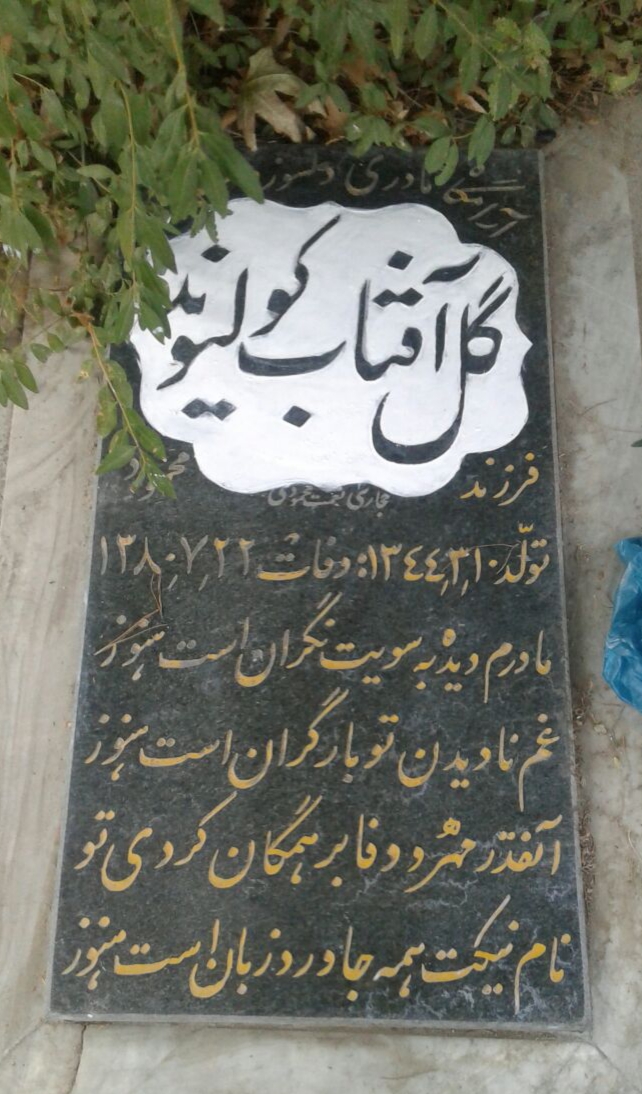 آرامگاه مادری دلسوز
گل آفتاب کولیوند
فرزند محمود
تولد: ۱۳۴۴,۳,۱۰ وفات: ۱۳۸۰,۷,۲۲
مادرم دیده به سویت نگران است هنوز
غم نادیدن تو بار گران است هنوز
آنقدر مهر و وفا بر همگان کردی تو
نام نیکت همه جا ورد زبان است هنوز